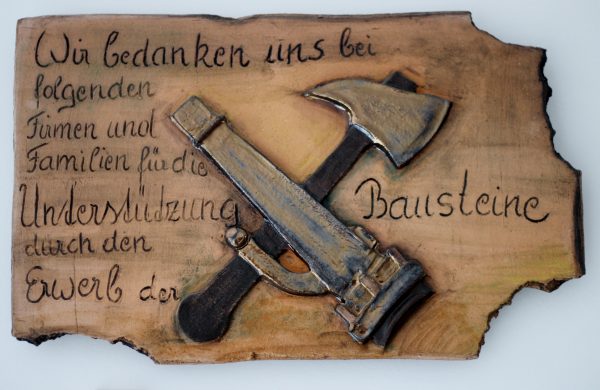 Wir bedanken uns bei
folgenden
Firmen und
Familien für die
Unterstützung
durch den
Erwerb der
Bausteine